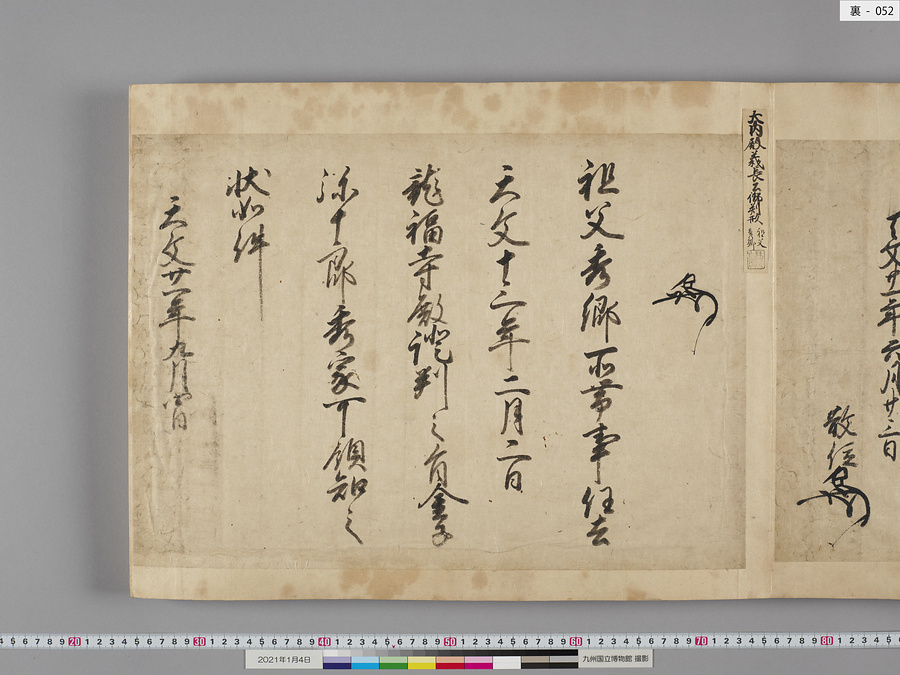 裏 - 052
天文廿一年六月廿三日
散位
大内殿義長公御判形
祖父
秀郷
祖父秀郷所帯事任去
天文十三年二月二日
龍福寺殿證判之旨金子
弥十郎秀家可領知之
状如件
天文廿一年九月四日
2021年1月4日
九州国立博物館 撮影